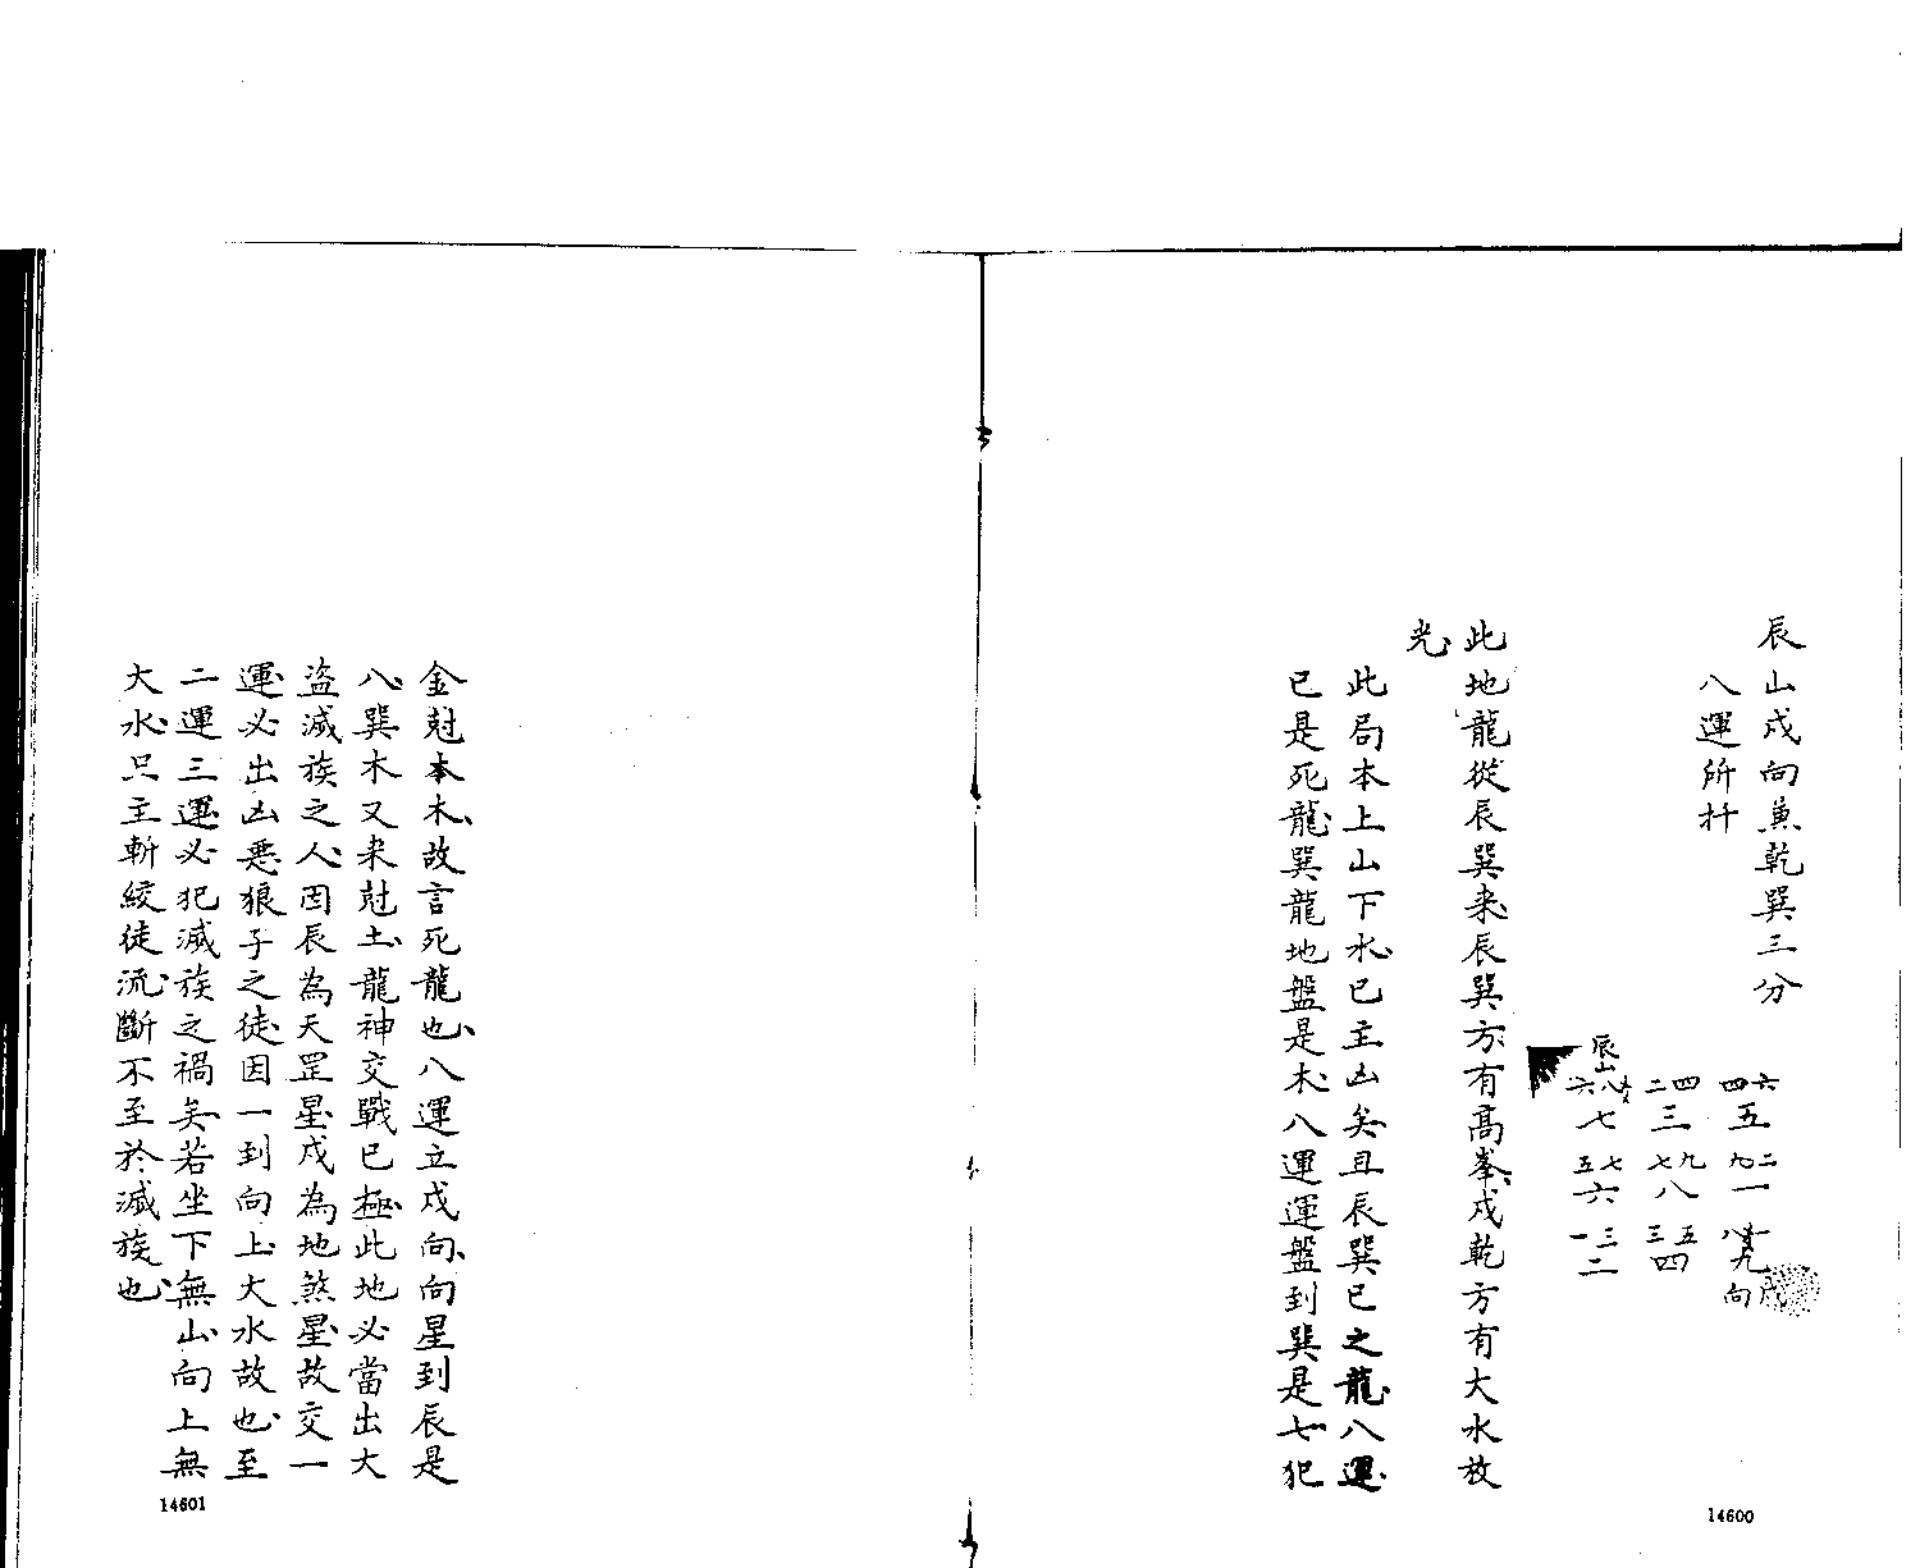 辰山戍向兼乾巽三分
八運所扦
四六 五
九二 一
八一 九
戍向
二四 三
七九 八
三五 四
辰山
六八 七
五七 六
一三 二
此地龍從辰巽来、辰巽方有高峯、戍乾方有大水放
光、
此局本上山下水、已主凶矣且辰巽已之龍、八運
已是死龍、巽龍地盤是木、八運運盤到巽是七犯
金尅本木、故言死龍也、八運立戍向、向星到辰是
八、巽木又来尅土、龍神交戰已極、此地必當出大
盗滅族之人、因辰為天罡星、戍為地煞星、故交一
運、必出凶惡狼子之徒、因一到向上大水故也、至
二運三運、必犯滅族之禍矣、若坐下無山、向上無
大水、只主斬絞徒流、斷不至於滅族也、
14600
14601